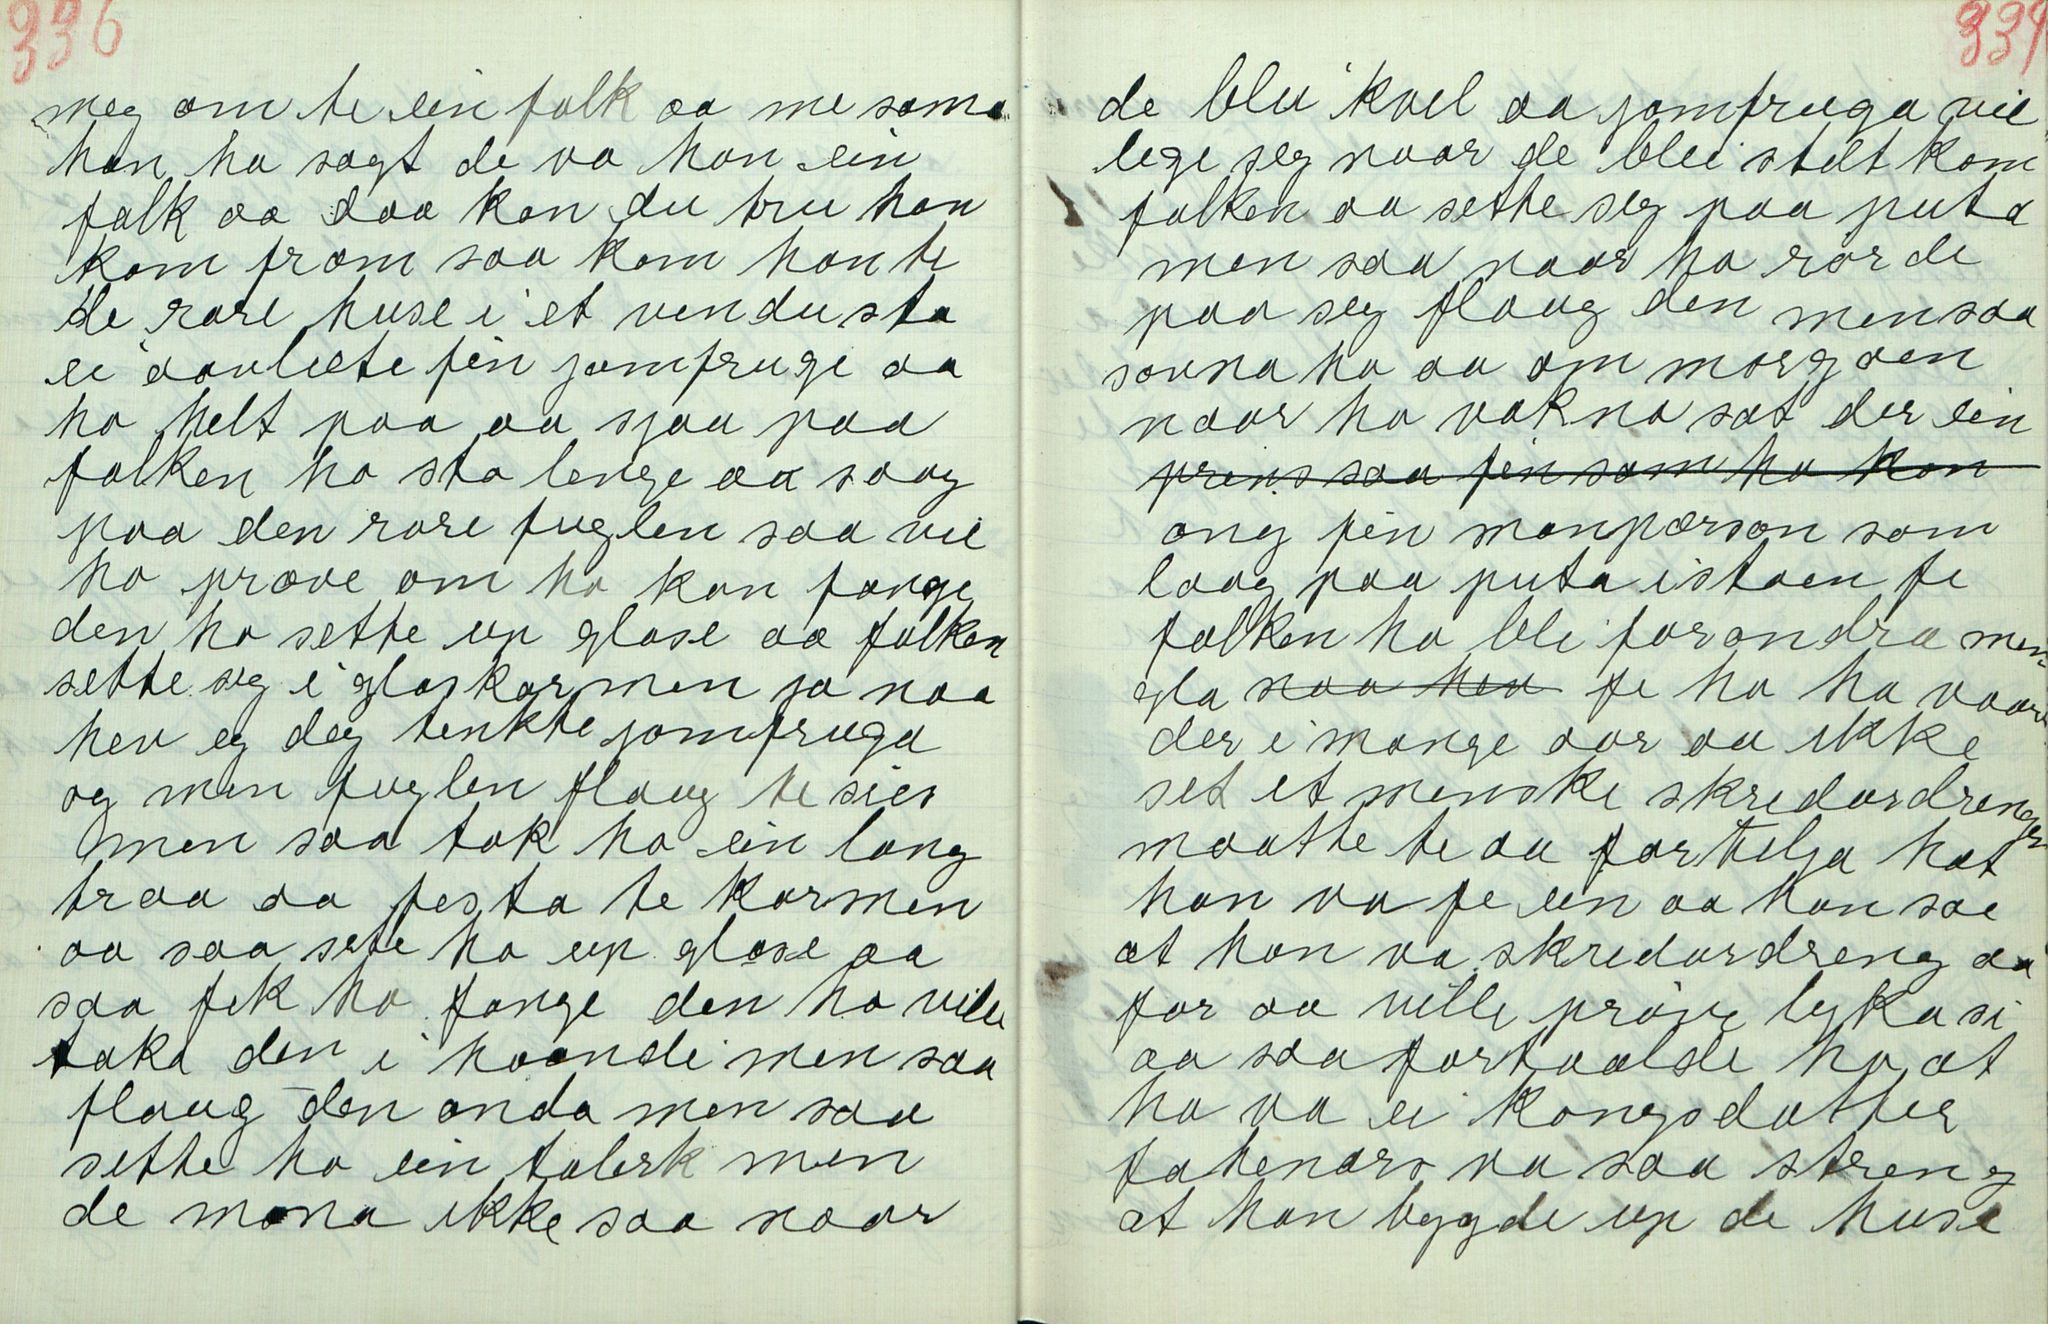 336
meg om te ein falk aa me sama
han ha sagt de va han ein
falk aa daa kan du tru han
kom fram saa kom han te
de rare huse i et vendu sta
ei aavlete fin jomfruge aa
ho helt paa aa sjaa paa
falken ho sta lenge aa saag
paa den rare fuglen saa vil
ho prøve om ho kan fange
den ho sette up glase aa falken
sette seg i glaskarmen ja naa
hev eg deg tenkte jomfruga
og men fuglen flaug te sies
men saa tok ho ein lang
traa aa festa te karmen
aa saa sete ho up glase aa
saa fek ho fange den ho ville
taka den i haandi men saa
flaug den onda men saa
sette ho ein talerk men
de mona ikke saa naar
339
de blei kvel aa jomfruga vil
lege seg naar de blei stelt kom
falken aa sette seg paa puta
men saa naar ho rør de
paa seg flaug den men saa
sovna ho aa om morgoen
naar ho vakna sat der ein
prins saa fin som ho kan
ong fin manpærson som
laag paa puta istaen fe
falken ha bli forandra men
gla naa hev fe ho ha vaare
der i mange aar aa ikke
set et menske skredardrengen
maatte te aa fortelja hat
han va fe ein aa han sae
at han va skredardreng aa
for aa ville prøve lyka si
aa saa fortaalde ho at
ho va ei kongsdatter
fa henars va saa streng
at han bygde up de huse